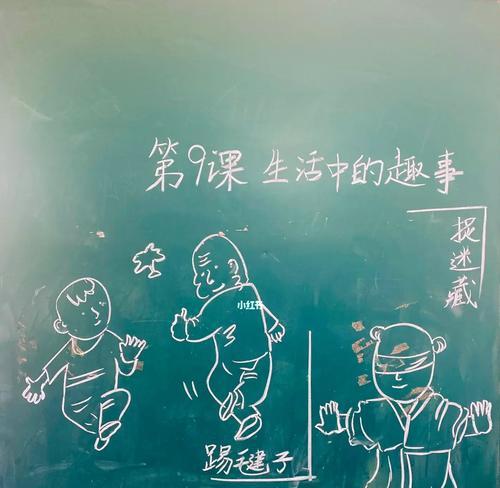 第9课 生活中的趣事
捉迷藏
小红书
踢毽子